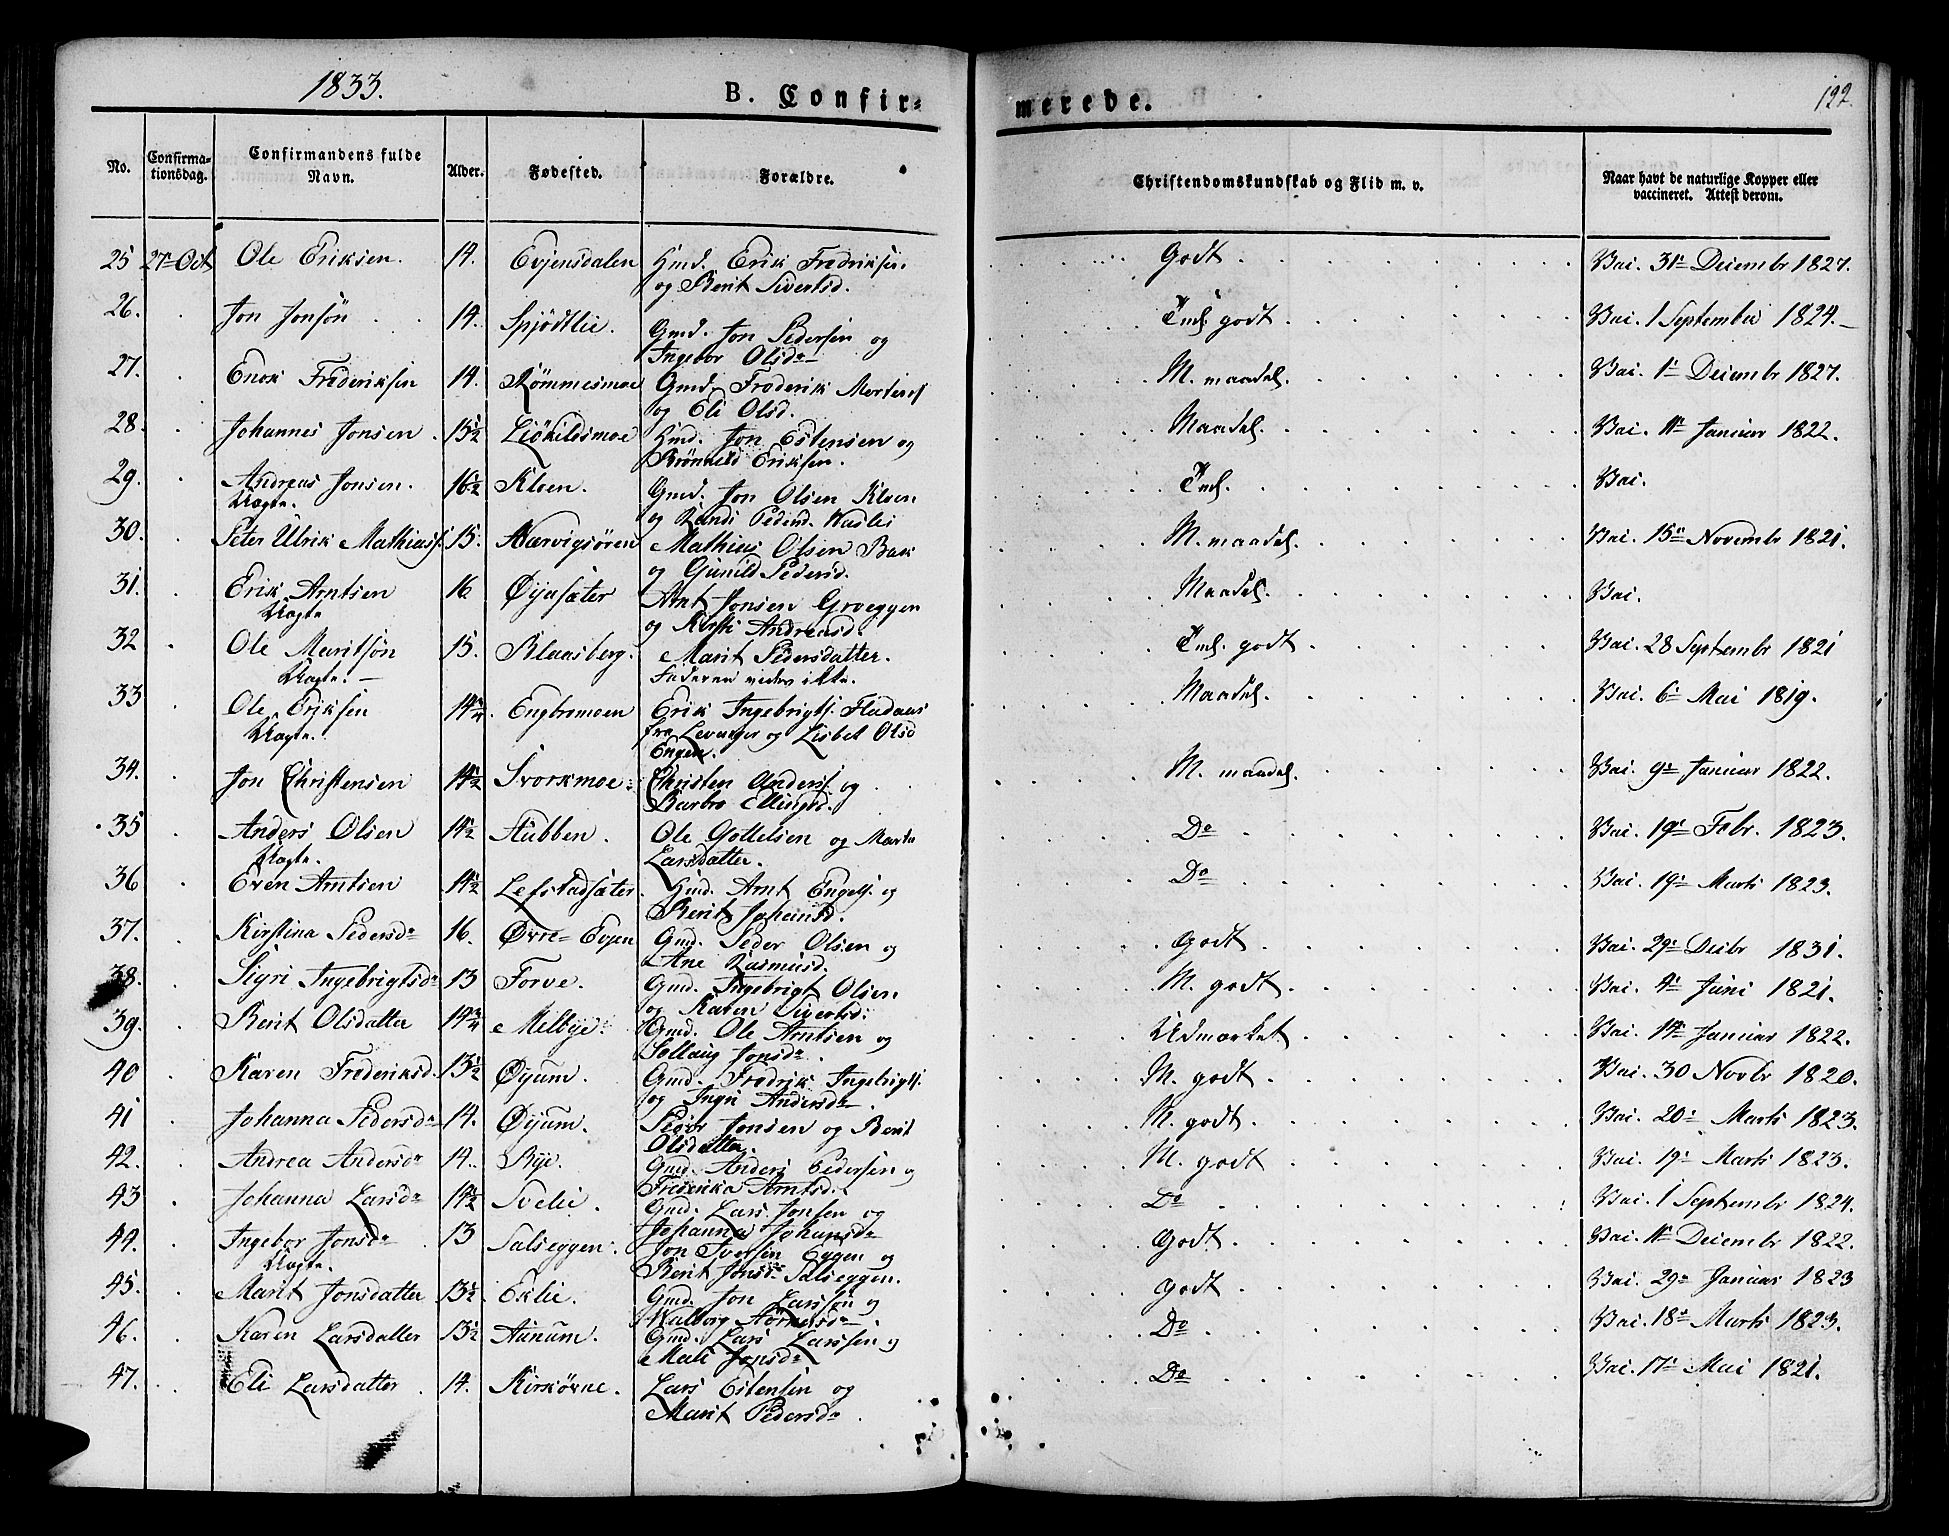 1833.
B. Confir=
merede.
192.
No.
Confirma-
tionsdag.
Confirmandens fulde
Navn.
Alder.
Fødested.
Forældre.
Christendomskundskab og Flid m. v.
Naar havt de naturlige Kopper eller
vaccineret. Attest derom.
25 27 Oct Ole Eriksen. 14. Evjensdalen Hmd. Erik Fredriksen. Godt Vac. 31 Decembr 1827.
og Berit Sivertsd.
26. Jon Jonsön 14. Spjödtlie. Gmd. Jon Pedersen og Tml. godt Vac. 1 September 1824.
Ingebor Olsd
27. Enok Frederiksen 14. Römmesmoe Gmd. Frederik Mortens M. maadel. Vac. 1 Decembr 1827.
og Eli Olsd.
28. Johannes Jonsen 15½ Hmd. Jon Estensen og Maadel. Vac. 11 Januar 1822.
Brönnild Eriksen.
29. Andreas Jonsen. 16½ Kloen. Gmd. Jon Olsen Kloen Tml. Vac.
Uægte. og Randi
30. Peter Ulrik Mathias 15. Hærvigsören Mathias Olsen Bak M. maadel. Vac. 15 Novembr 1821.
og Gunild Pedersd.
31. Erik Arntsen 16 Øyasæter Arnt Jonsen Groeggen Maadel. Vac.
Uægte og Kirsti Andreasd.
32 Ole Maritsön 15. Blaasberg. Marit Pedersdatter. Tml. godt Vac. 28 Septembr 1821
Uægte. Faderen vides ikke.
33 Ole Eriksen 14 Engbromoen Erik Ingebrigts. Maadel. Vac. 6 Mai 1819.
Uægte. fra Levanger og Lisbet Olsd
Engen.
34. Jon Christensen 14½ Svorkmoe Christen Anders og M. maadel. Vac. 9 Januar 1822.
Barbro Ellingsd.
35 Anders Olsen 14½ Stubben. Ole Gollelsen og Marta Do Vac. 19 Febr. 1823.
Uægte. Larsdatter.
36 Even Arntsen 14½ Lefstadsæter. Hmd. Arnt Engels. og Do Vac. 19 Marts 1823.
Berit
37. Kirstina Pedersd 16. Øvre Evjen Gmd. Peder Olsen og Godt Vac. 29 Decbr 1831.
Ane Rasmusd.
38. Sigri Ingebrigtsd 13 Forve. Gmd. Ingebrigt Olsen M. godt Vac. 4 Juni 1821.
og Karen Sivertsd.
39. Berit Olsdatter 14¾ Melbye. Gmd. Ole Arntsen og Udmærket Vac. 14 Januar 1822.
Sollaug Jonsd
40 Karen Frederiksd. 13½ Øyum. Gmd. Fredrik Ingebrigts. M. godt Vac. 30 Novbr 1820.
og Ingri Andersd
41 Johanna Pedersd 14. Øyum. Peder Jonsen og Berit M. godt Vac. 20 Marts 1823.
Olsdatter.
42. Andrea Andersd 14. Rye. Gmd. Anders Pedersen og M. godt Vac. 19 Marts 1823.
Frederika Arntsd.
43 Johanna Larsd 14½ Svelie. Gmd. Lars Jonsen og Do Vac. 1 Septembr 1824.
Johanna Johansd
44. Ingebor Jonsd 13 Salseggen. Jon Iversen Eggen og Godt Vac. 11 Decembr 1822.
Uægte. Berit Jonsd Salseggen.
45. Marit Jonsdatter 13½ Eklie. Gmd. Jon Larssön og Godt Vac. 29 Januar 1823
Walborg
46. Karen Larsdatter 13½ Aunum. Gmd. Lars Larssen og Do Vac. 18 Marts 1823.
Mali Jonsd
47. Eli Larsdatter 14. Kirskörne. Lars Estensen og Do Vac. 17 Mai 1821.
Marit Pedersd